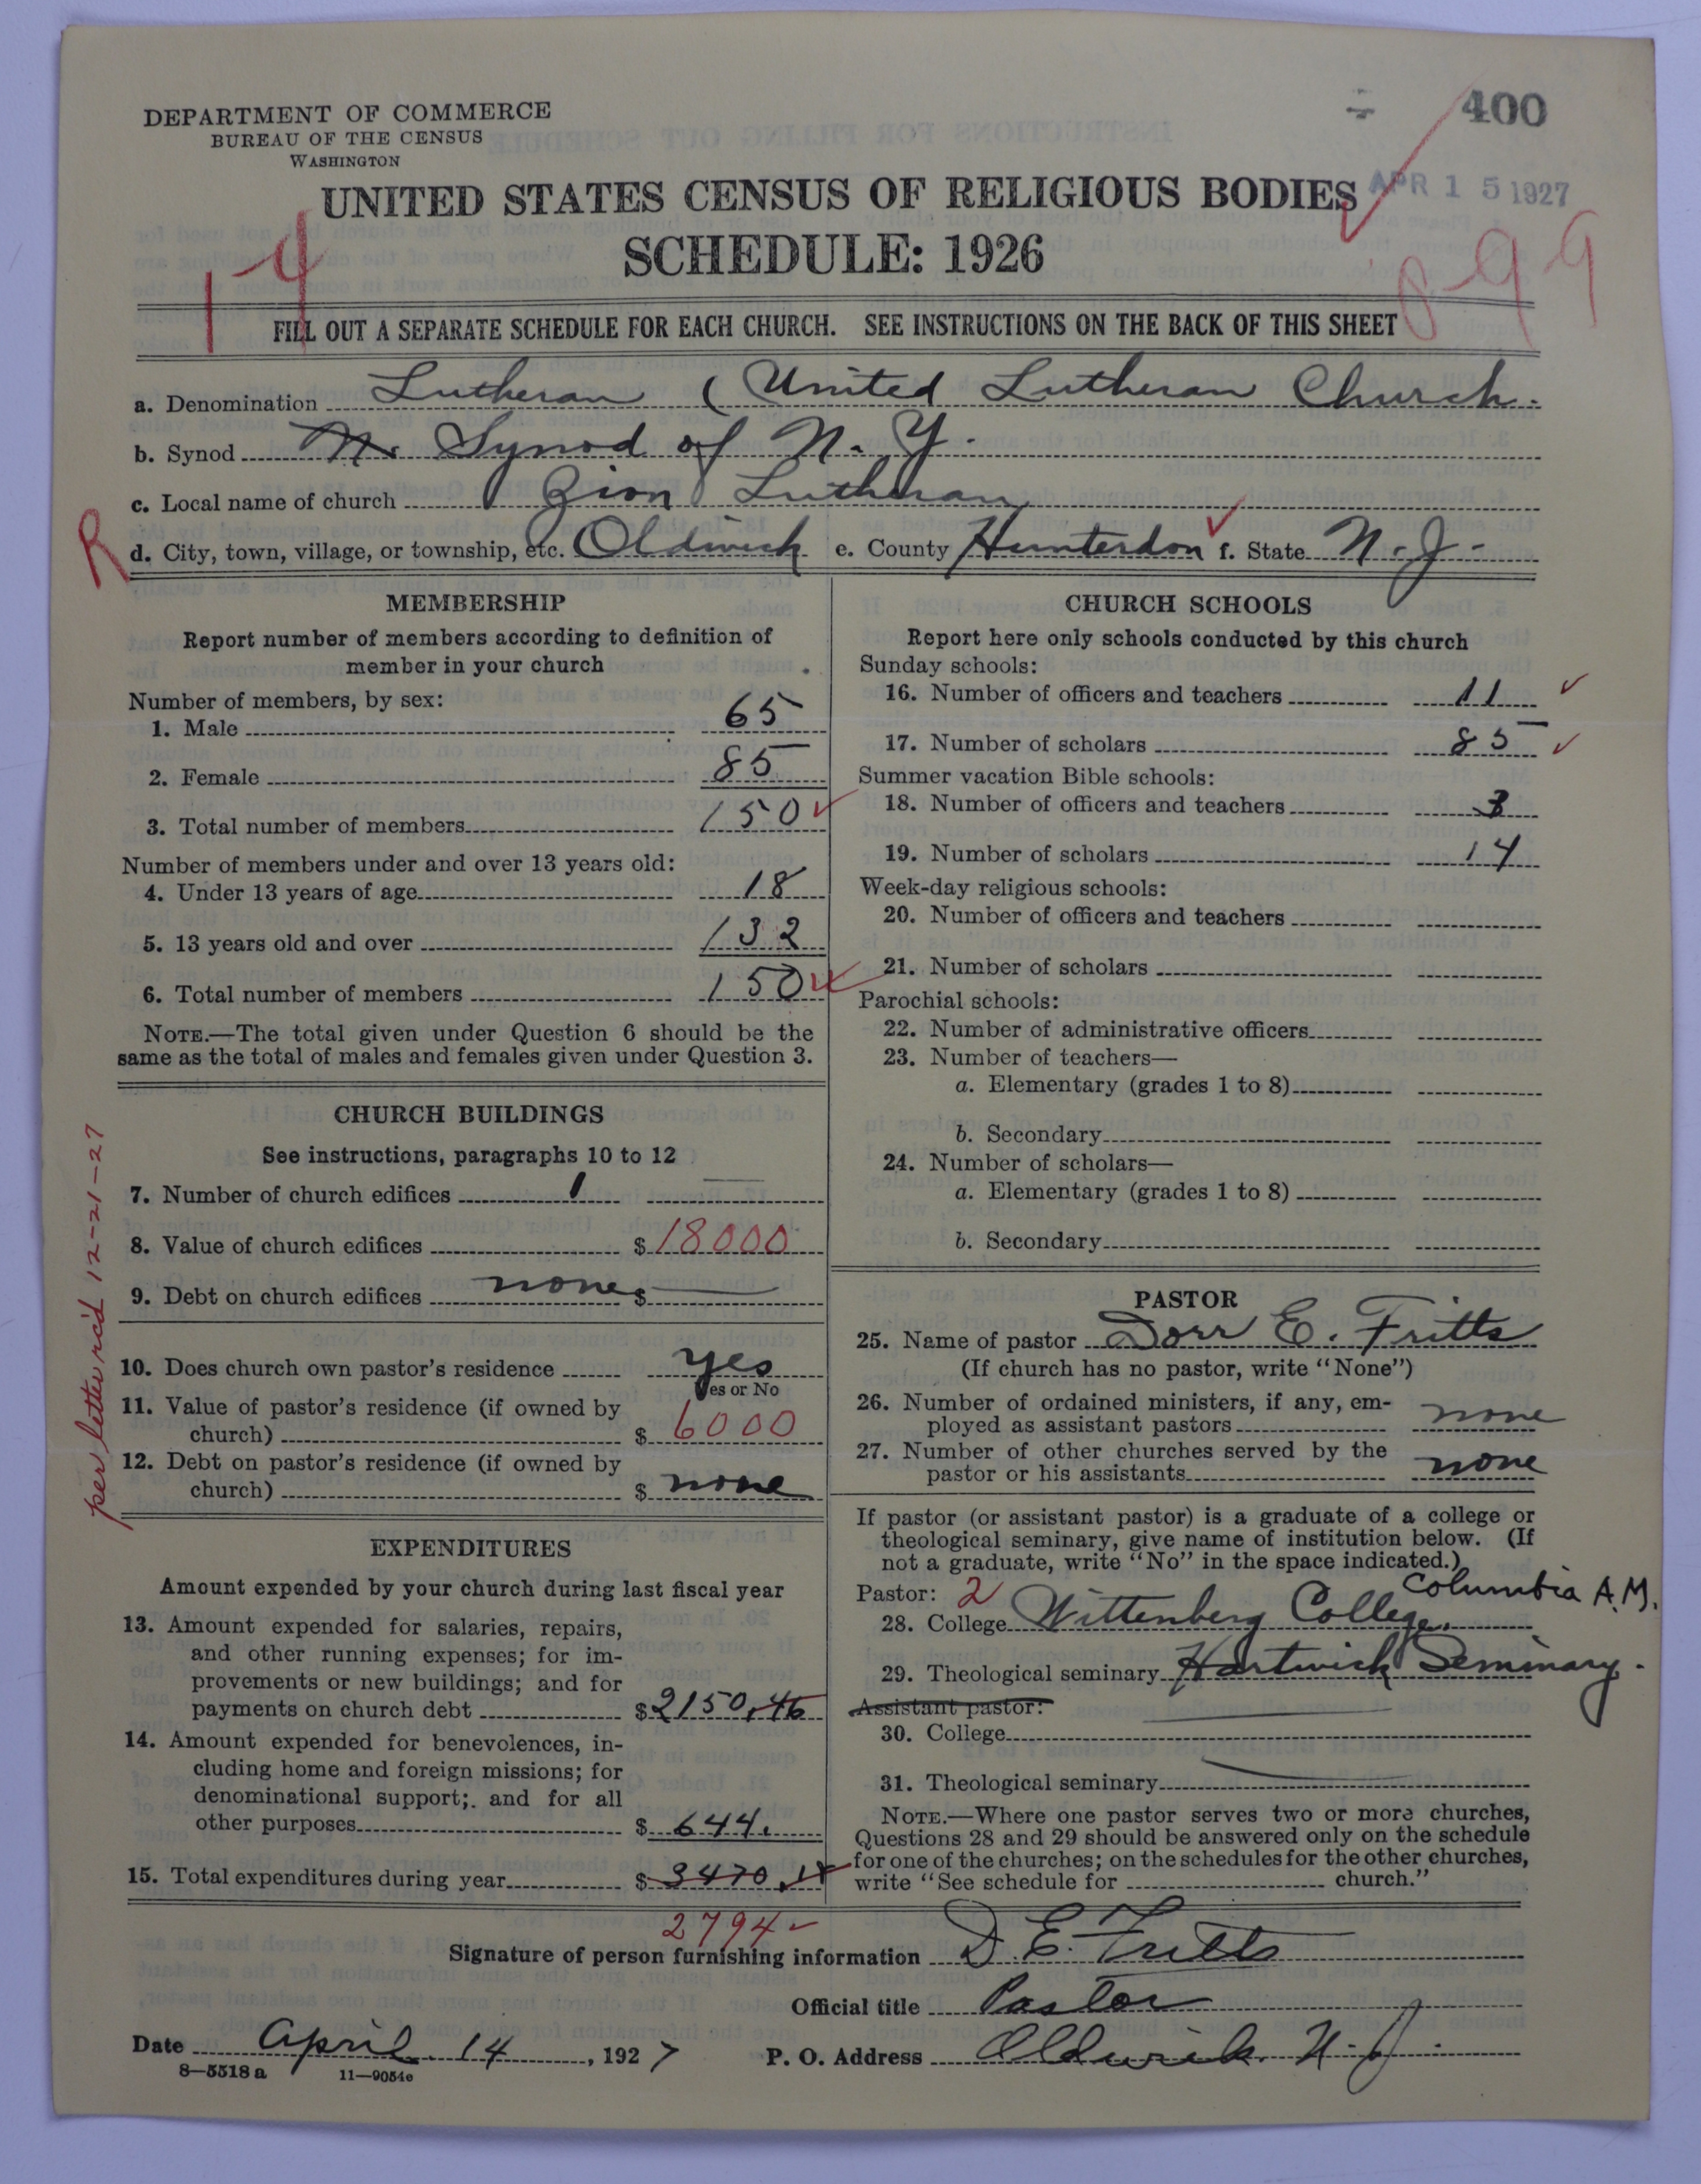 400
DEPARTMENT OF COMMERCE
BUREAU OF THE CENSUS
WASHINGTON
APR 15 1927
UNITED STATES CENSUS OF RELIGIOUS BODIES
SCHEDULE: 1926
14
899
FILL OUT A SEPARATE SCHEDULE FOR EACH CHURCH. SEE INSTRUCTIONS ON THE BACK OF THIS SHEET
a. Denomination Lutheran (United Lutheran Church.
b. Synod N. Synod of N. Y.
c. Local name of church Zion Lutheran
R
d. City, town, village, or township, etc. Oldwick e. County Hunterdon f. State N. J.
MEMBERSHIP
Report number of members according to definition of
member in your church
Number of members, by sex:
1. Male 65
2. Female 85
3. Total number of members 150
Number of members under and over 13 years old:
4. Under 13 years of age 18
5. 13 years old and over 132
6. Total number of members 150
NOTE.—The total given under Question 6 should be the
same as the total of males and females given under Question 3.
CHURCH BUILDINGS
See instructions, paragraphs 10 to 12
7. Number of church edifices 1
8. Value of church edifices $ 18000
9. Debt on church edifices none $
10. Does church own pastor's residence yes
Yes or No
11. Value of pastor's residence (if owned by
church) $ 6000
12. Debt on pastor's residence (if owned by
church) $ none
per letter rc'd 12-21-27
EXPENDITURES
Amount expended by your church during last fiscal year
13. Amount expended for salaries, repairs,
and other running expenses; for im-
provements or new buildings; and for
payments on church debt $ 2150.46
14. Amount expended for benevolences, in-
cluding home and foreign missions; for
denominational support; and for all
other purposes $ 644.
15. Total expenditures during year $ 3470.18
2794
CHURCH SCHOOLS
Report here only schools conducted by this church
Sunday schools:
16. Number of officers and teachers 11
17. Number of scholars 85
Summer vacation Bible schools:
18. Number of officers and teachers 3
19. Number of scholars 14
Week-day religious schools:
20. Number of officers and teachers
21. Number of scholars
Parochial schools:
22. Number of administrative officers
23. Number of teachers—
a. Elementary (grades 1 to 8)
b. Secondary
24. Number of scholars—
a. Elementary (grades 1 to 8)
b. Secondary
PASTOR
25. Name of pastor Dorr E. Fritts
(If church has no pastor, write "None")
26. Number of ordained ministers, if any, em-
ployed as assistant pastors none
27. Number of other churches served by the
pastor or his assistants none
If pastor (or assistant pastor) is a graduate of a college or
theological seminary, give name of institution below. (If
not a graduate, write "No" in the space indicated.)
Pastor: 2 Columbia A.M.
28. College Wittenberg College,
29. Theological seminary Hartwick Seminary.
Assistant pastor:
30. College
31. Theological seminary
NOTE.—Where one pastor serves two or more churches,
Questions 28 and 29 should be answered only on the schedule
for one of the churches; on the schedules for the other churches,
write "See schedule for church."
Signature of person furnishing information D. E. Fritts
Official title Pastor
Date April 14, 1927 P. O. Address Oldwick N. J.
8—5518 a 11—9054e